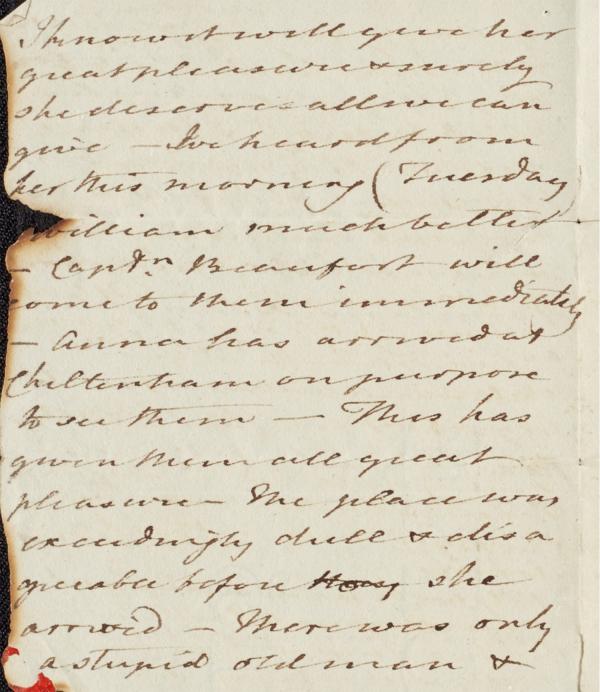 I know it will give her
great pleasure & surely
she deserves all we can
give — I've heard from
her this morning (Tuesday)
William much better
— Captn Beaufort will
come to them immediately
— Anna has arrived at
Cheltenham on purpose
to see them — This has
given them all great
pleasure — The place was
exceedingly dull & disa
greeable before they she
arrived — There was only
a stupid old man &